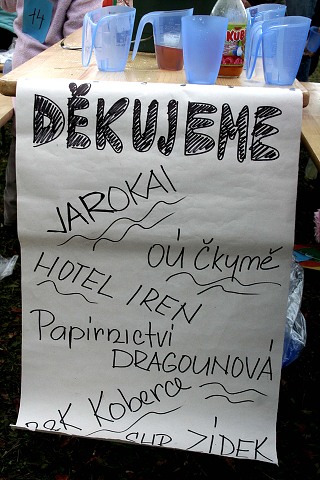 14
KUB
DĚKUJEME
JAROKAI
OÚ Čkymě
HOTEL IREN
Papírnictví
DRAGOUNOVÁ
Koberce
ZÍDEK